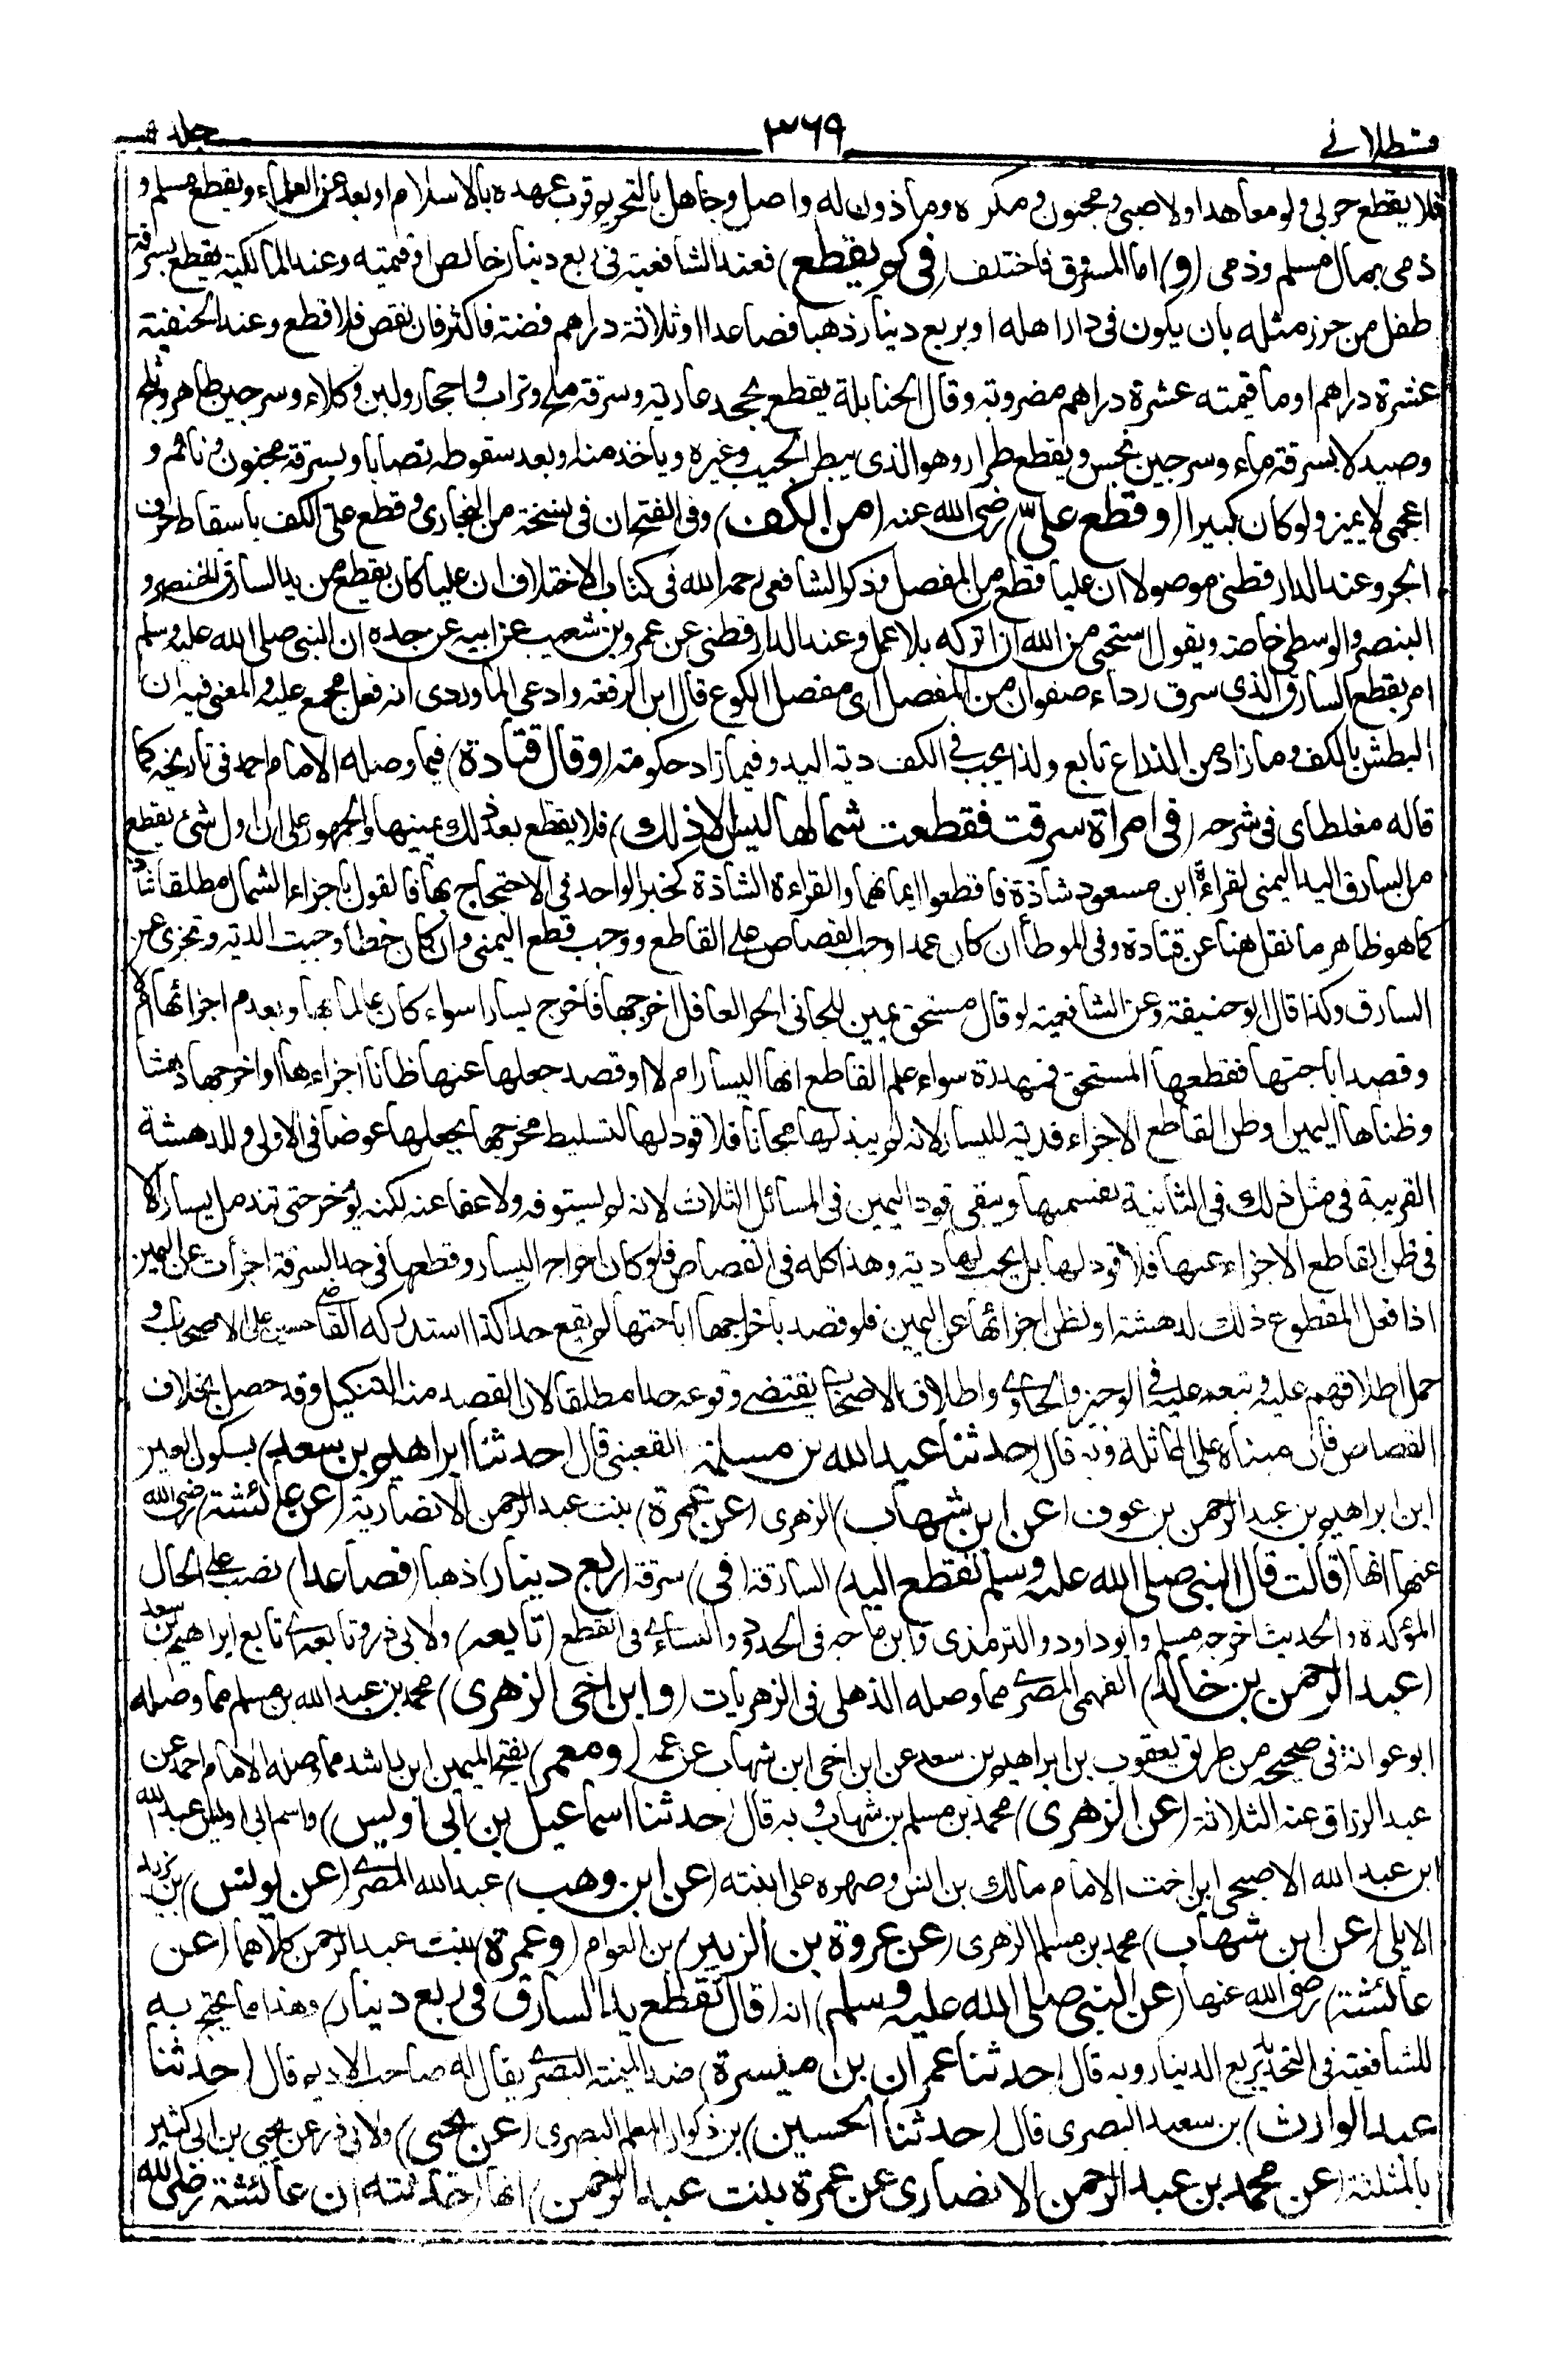 قسطلانے ٣٦٩ جلد ٩
فلا يقطع حربى ولو معاهدا ولا صبى و مجنون و مكره وماذون له واصل وجاهل بالتحريم قرب عهده بالاسلام او بعد عن العلماء ويقطع مسلم و
ذمى بمال مسلم وذمى (و) اما المسروق فاختلف (فى كم يقطع) فعند الشافعية فى ربع دينار خالص او قيمته وعند المالكية يقطع بسرقة
طفل من حرز مثله بان يكون فى دار اهله او بربع دينار ذهبا فصاعدا او ثلاثة دراهم فضة فاكثر فان نقص فلا قطع وعند الحنفية
عشرة دراهم او ما قيمته عشرة دراهم مضروبة وقال الحنابلة يقطع بجحد عارية وسرقة ملح وتراب و احجار ولبن وكلاء وسرجين طاهر وثلج
وصيد لا بسرقة ماء وسرجين نجس ويقطع طرار وهو الذى يبط الجيب وغيره وياخذ منه او بعد سقوطه نصابا وبسرقة مجنون و نائم و
اعجمى لا يميز ولو كان كبيرا (وقطع على) رضى الله عنه (من الكف) وفى الفتح ان فى نسخة من البخارى و قطع على الكف باسقاط حرف
الجر وعند الدارقطنى موصولا ان عليا قطع من المفصل وذكر الشافعى رحمه الله فى كتاب الاختلاف ان عليا كان يقطع من يد السارق الخنصر و
البنصر والوسطى خاصة ويقول استحى من الله ان اتركه بلا عمل وعند الدارقطنى عن عمرو بن شعيب عن ابيه عن جده ان النبى صلى الله عليه وسلم
امر بقطع السارق الذى سرق رداء صفوان من المفصل اى مفصل الكوع قال ابن الرفعة وادعى الماوردى انه فعل مجمع عليه والمعنى فيه ان
البطش بالكف وما زاد من الذراع تابع ولذا يجب فى الكف دية اليد وفيما زاد حكومة (وقال قتادة) فيما وصله الامام احمد فى تاريخه كما
قاله مغلطاى فى شرحه (فى امراة سرقت فقطعت شمالها ليس الا ذلك) فلا يقطع بعد ذلك يمينها والجمهور على ان اول شئ يقطع
من السارق اليد اليمنى لقراءة ابن مسعود شاذة فاقطعوا ايمانهما والقراءة الشاذة كخبر الواحد فى الاحتجاج بها فالقول باجزاء الشمال مطلقا شاذ
كما هو ظاهر ما نقل هنا عن قتادة وفى الموطأ ان كان عمدا وجب القصاص على القاطع ووجب قطع اليمنى وان كان خطأ وجبت الدية وتجزى عن
السارق وكذا قال ابو حنيفة وعن الشافعية لو قال مستحق يمين للجانى الحر العاقل اخرجها فاخرج يسارا سواء كان عالما بها وبعدم اجزائها ام لا
وقصد اباحتها فقطعها المستحق فمهدرة سواء علم القاطع انها اليسار ام لا او قصد جعلها عنها ظانا اجزاءها او اخرجها دهشا
وظناها اليمين او ظن القاطع الاجزاء فدية لليسار لانه لم يبذلها مجانا فلا قود لها لتسليط مخرجها بجعلها عوضا فى الاولى وللدهشة
القريبة فى مثل ذلك فى الثانية بقسميها ويبقى قود اليمين فى المسائل الثلاث لانه لم يستوفه ولا عفا عنه لكنه يؤخر حتى تندمل يساره الا
فى ظن القاطع الاجزاء عنها فلا قود لها بل يجب لها دية وهذا كله فى القصاص فلو كان اخراج اليسار وقطعها فى حد السرقة اجزأت عن اليمين
اذا فعل المقطوع ذلك لدهشة او لظن اجزائها عن اليمين فلو قصد باخراجها اباحتها لم يقع حدا كذا استدركه القاضى حسين على الاصحاب و
حمل اطلاقهم عليه وتبعه عليه فى الوجيز والحاوى واطلاق الاصحاب يقتضى وقوعه حدا مطلقا لان القصد منه التنكيل وقد حصل بخلاف
القصاص فان مبناه على المماثلة وبه قال (حدثنا عبد الله بن مسلمة) القعنبى قال (حدثنا ابراهيم بن سعد) بسكون العين
ابن ابراهيم بن عبد الرحمن بن عوف (عن ابن شهاب) الزهرى (عن عمرة) بنت عبد الرحمن الانصارية (عن عائشة) رضى الله
عنها انها (قالت قال النبى صلى الله عليه وسلم تقطع اليد) السارقة (فى) سرقة (ربع دينار) ذهبا (فصاعدا) نصب على الحال
المؤكدة والحديث اخرجه مسلم وابو داود والترمذى وابن ماجه فى الحدود والنسائى فى القطع (تابعه) ولابى ذر وتابعه اى تابع ابراهيم بن سعد
(عبد الرحمن بن خالد) الفهمى المصرى مما وصله الذهلى فى الزهريات (وابن اخى الزهرى) محمد بن عبد الله بن مسلم مما وصله
ابو عوانة فى صحيحه من طريق يعقوب بن ابراهيم بن سعد عن ابن اخى ابن شهاب عن عمه (ومعمر) بفتح الميمين ابن راشد مما وصله الامام احمد عن
عبد الرزاق عنه الثلاثة (عن الزهرى) محمد بن مسلم بن شهاب وبه قال (حدثنا اسماعيل بن ابى اويس) واسم ابى اويس عبد الله
ابن عبد الله الاصبحى ابن اخت الامام مالك بن انس وصهره على ابنته (عن ابن وهب) عبد الله المصرى (عن يونس) بن يزيد
الايلى (عن ابن شهاب) محمد بن مسلم الزهرى (عن عروة بن الزبير) بن العوام (وعمرة) بنت عبد الرحمن كلاهما (عن
عائشة) رضى الله عنها (عن النبى صلى الله عليه وسلم) انه (قال تقطع يد السارق فى ربع دينار) وهذا مما يحتج به
للشافعية فى التحديد بربع الدينار وبه قال (حدثنا عمران بن ميسرة) ضد الميمنة البصرى يقال له صاحب الاديم قال (حدثنا
عبد الوارث) بن سعيد البصرى قال (حدثنا الحسين) بن ذكوان المعلم البصرى (عن يحيى) ولابى ذر عن يحيى بن ابى كثير
بالمثلثة (عن محمد بن عبد الرحمن الانصارى عن عمرة بنت عبد الرحمن) انها (حدثته ان عائشة رضى الله